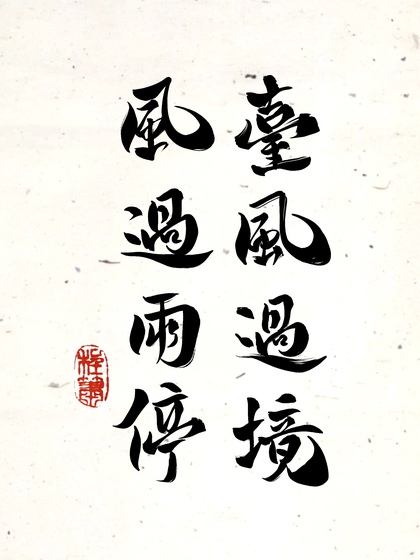 臺風過境
風過雨停